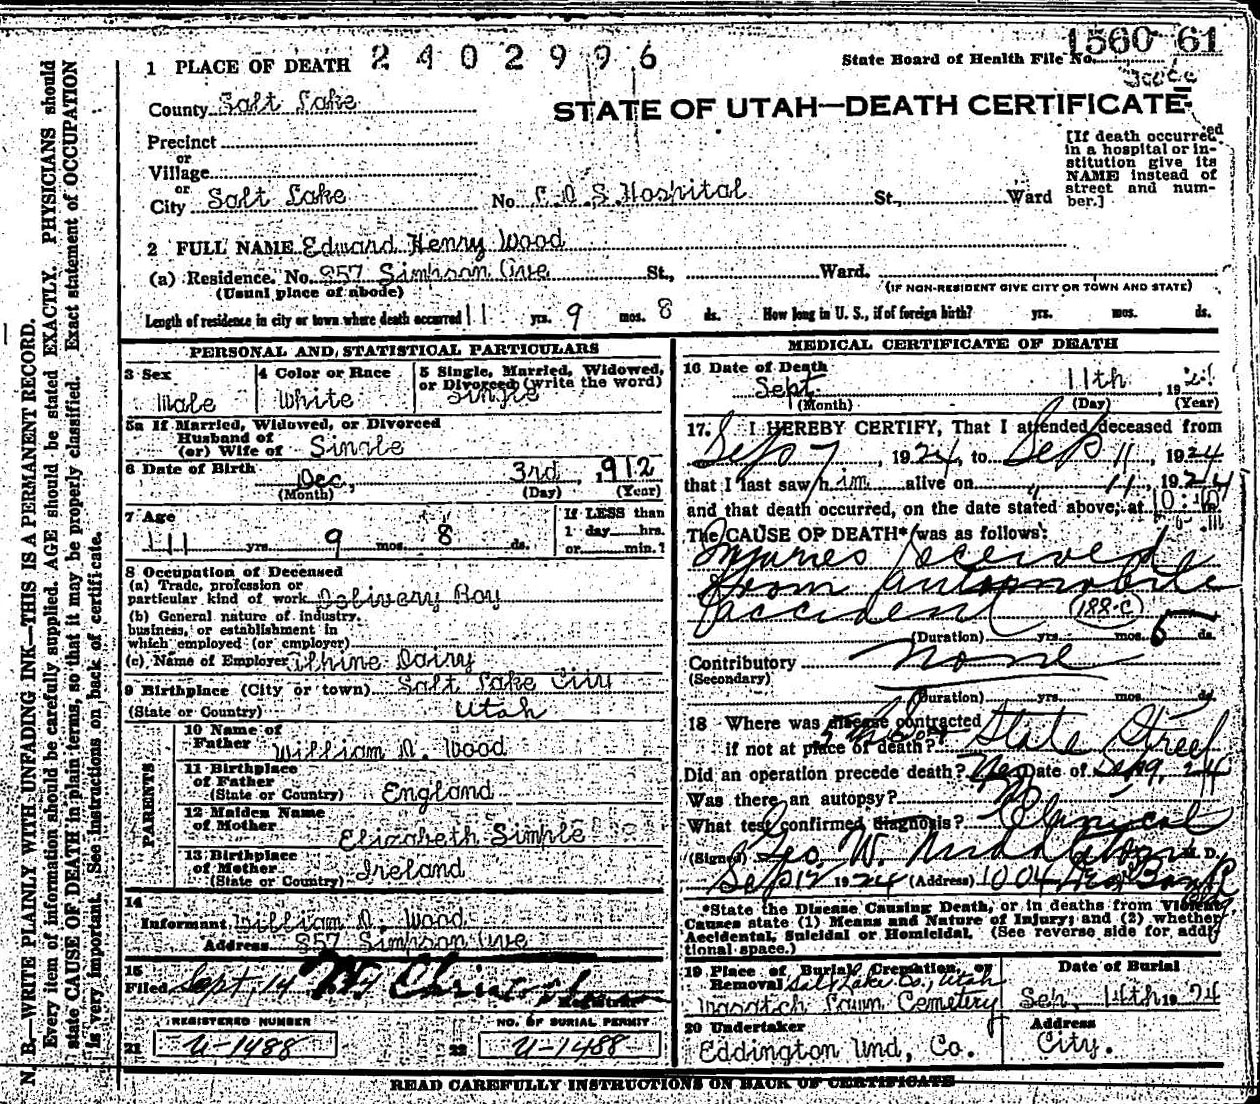 1560 61
2402996
State Board of Health File No.
1 PLACE OF DEATH
STATE OF UTAH—DEATH CERTIFICATE
County Salt Lake
Precinct
or
Village
or
City Salt Lake No. L.D.S. Hospital St., Ward
[If death occurred in a hospital or institution give its NAME instead of street and number.]
2 FULL NAME Edward Henry Wood
(a) Residence. No. 857 Simpson Ave St., Ward.
(Usual place of abode) (IF NON-RESIDENT GIVE CITY OR TOWN AND STATE)
Length of residence in city or town where death occurred 11 yrs. 9 mos. 8 ds. How long in U. S., if of foreign birth? yrs. mos. ds.
PERSONAL AND STATISTICAL PARTICULARS
3 Sex Male
4 Color or Race White
5 Single, Married, Widowed, or Divorced (write the word) Single
5a If Married, Widowed, or Divorced
Husband of
(or) Wife of Single
6 Date of Birth Dec, 3rd, 1912
(Month) (Day) (Year)
7 Age 11 yrs. 9 mos. 8 ds.
If LESS than
1 day hrs.
or min.?
8 Occupation of Deceased
(a) Trade, profession or
particular kind of work Delivery Boy
(b) General nature of industry,
business, or establishment in
which employed (or employer)
(c) Name of Employer Dairy
9 Birthplace (City or town) Salt Lake City
(State or Country) Utah
PARENTS
10 Name of
Father William D. Wood
11 Birthplace
of Father
(State or Country) England
12 Maiden Name
of Mother Elizabeth Simple
13 Birthplace
of Mother
(State or Country) Ireland
14
Informant William D. Wood
Address 857 Simpson Ave
15
Filed Sept, 14
Registrar
REGISTERED NUMBER
21 U-1488
NO. OF BURIAL PERMIT
22 U-1488
MEDICAL CERTIFICATE OF DEATH
16 Date of Death
Sept 11th, 1924
(Month) (Day) (Year)
17. I HEREBY CERTIFY, That I attended deceased from
Sep 7, 1924, to Sep 11, 1924
that I last saw him alive on " 11, 1924
and that death occurred, on the date stated above, at 10:10 m.
The CAUSE OF DEATH* was as follows:
Injuries received
from automobile
accident 188-c
(Duration) yrs. mos. 5 ds.
Contributory None
(Secondary)
(Duration) yrs. mos. ds.
18 Where was disease contracted
if not at place of death? State Street
Did an operation precede death? Yes Date of Sep 9, 24
Was there an autopsy? No
What test confirmed diagnosis? Clinical
(Signed) Geo. W. Middleton M. D.
Sep 12 1924 (Address) 1004 Bank Bldg.
*State the Disease Causing Death, or in deaths from Violent
Causes state (1) Means and Nature of Injury; and (2) whether
Accidental, Suicidal or Homicidal. (See reverse side for additional space.)
19 Place of Burial, Cremation, or
Removal Salt Lake Co., Utah
Wasatch Lawn Cemetery
Date of Burial
Sep, 14th 1924
20 Undertaker
Eddington Und, Co.
Address
City.
READ CAREFULLY INSTRUCTIONS ON BACK OF CERTIFICATE
N. B.—WRITE PLAINLY WITH UNFADING INK—THIS IS A PERMANENT RECORD.
Every item of information should be carefully supplied. AGE should be stated EXACTLY. PHYSICIANS should
state CAUSE OF DEATH in plain terms, so that it may be properly classified. Exact statement of OCCUPATION
is very important. See instructions on back of certificate.